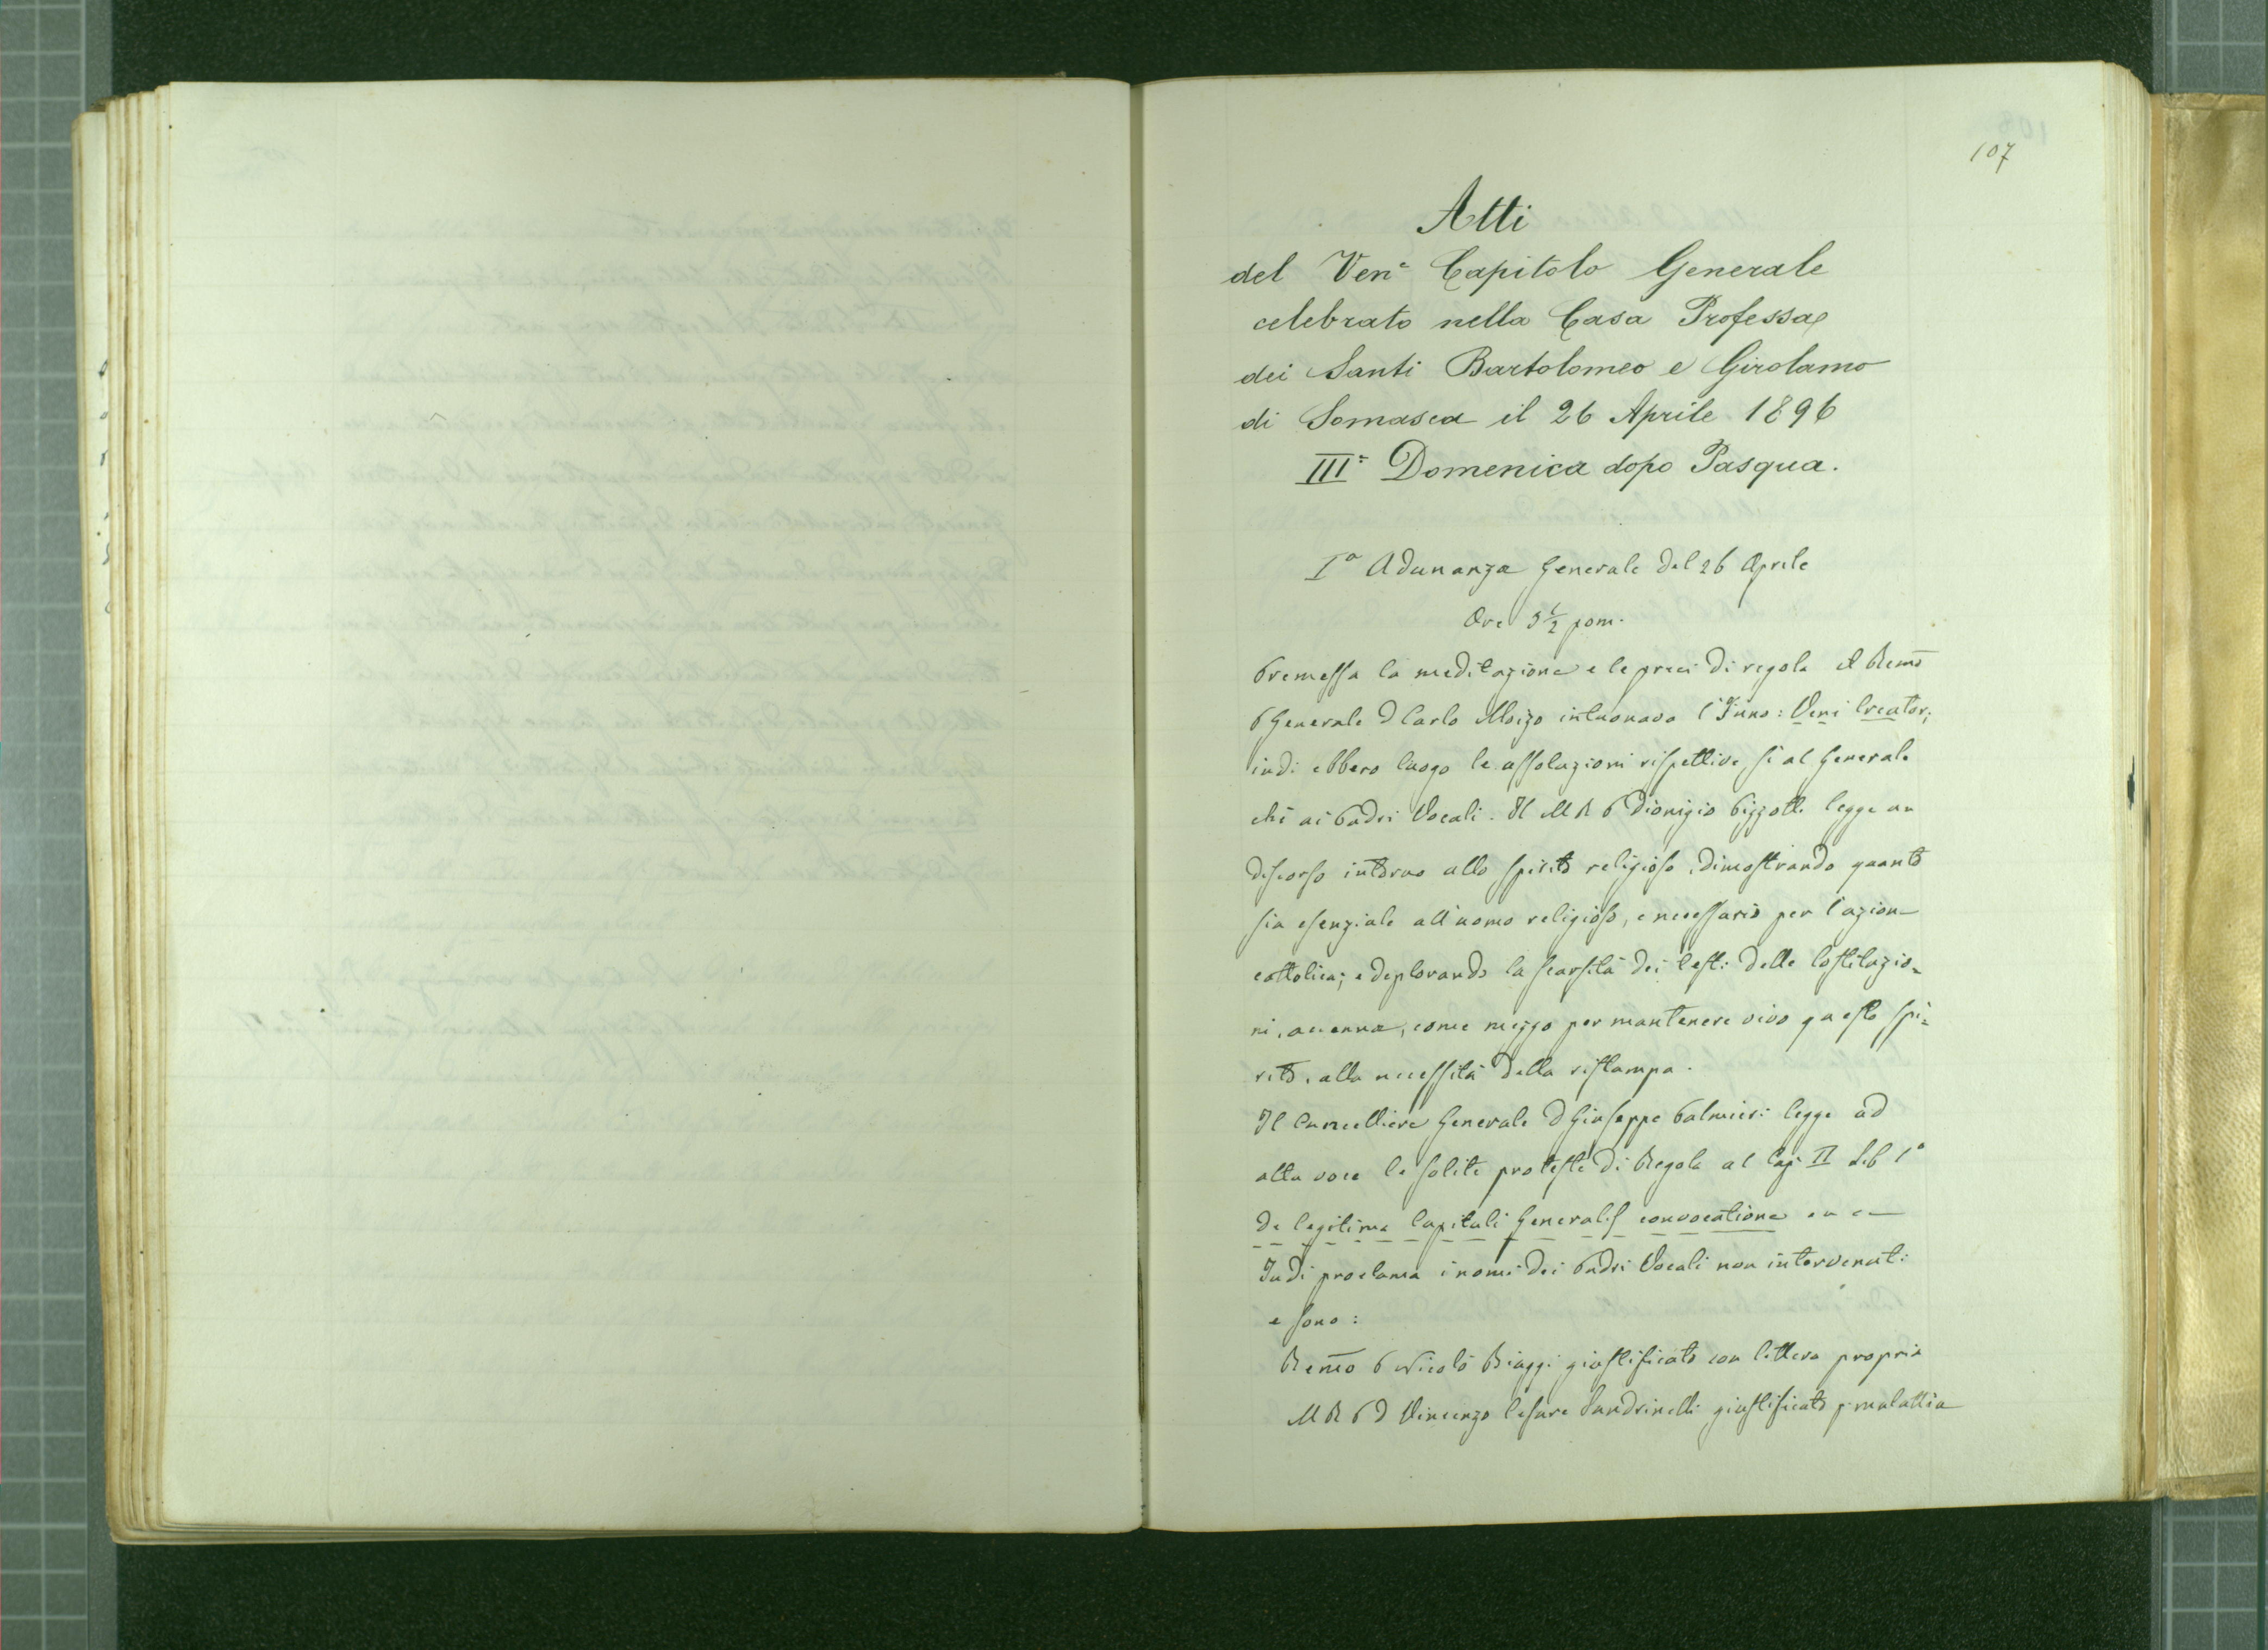 107
Atti
del Ven.e Capitolo Generale
celebrato nella Casa Professa
dei Santi Bartolomeo e Girolamo
di Somasca il 26 Aprile 1896
III.a Domenica dopo Pasqua.
Iª Adunanza Generale del 26 Aprile
Ore 5½ pom.
Premessa la meditazione e le preci di regola il Remo
P Generale D Carlo Moizo intuonava l'Inno: Veni Creator;
indi ebbero luogo le assoluzioni rispettive, sì al Generale
che ai Padri Vocali. Il M R P Dionigio Pizzotti legge un
discorso intorno allo spirito religioso, dimostrando quanto
sia esenziale all'uomo religioso, e necessario per l'azione
cattolica; e deplorando la scarsità dei testi delle Costituzio=
ni, accenna, come mezzo per mantenere vivo questo spi=
rito, alla necessità della ristampa.
Il Cancelliere Generale D Giuseppe Palmieri legge ad
alta voce le solite proteste di Regola al Cap II Lib 1º
de legitima Capituli Generalis convocatione
Indi proclama i nomi dei Padri Vocali non intervenuti
e sono:
Remo P Nicolò Biaggi giustificato con lettera propria
M R P D Vincenzo Cesare Sandrinelli giustificato p. malattia